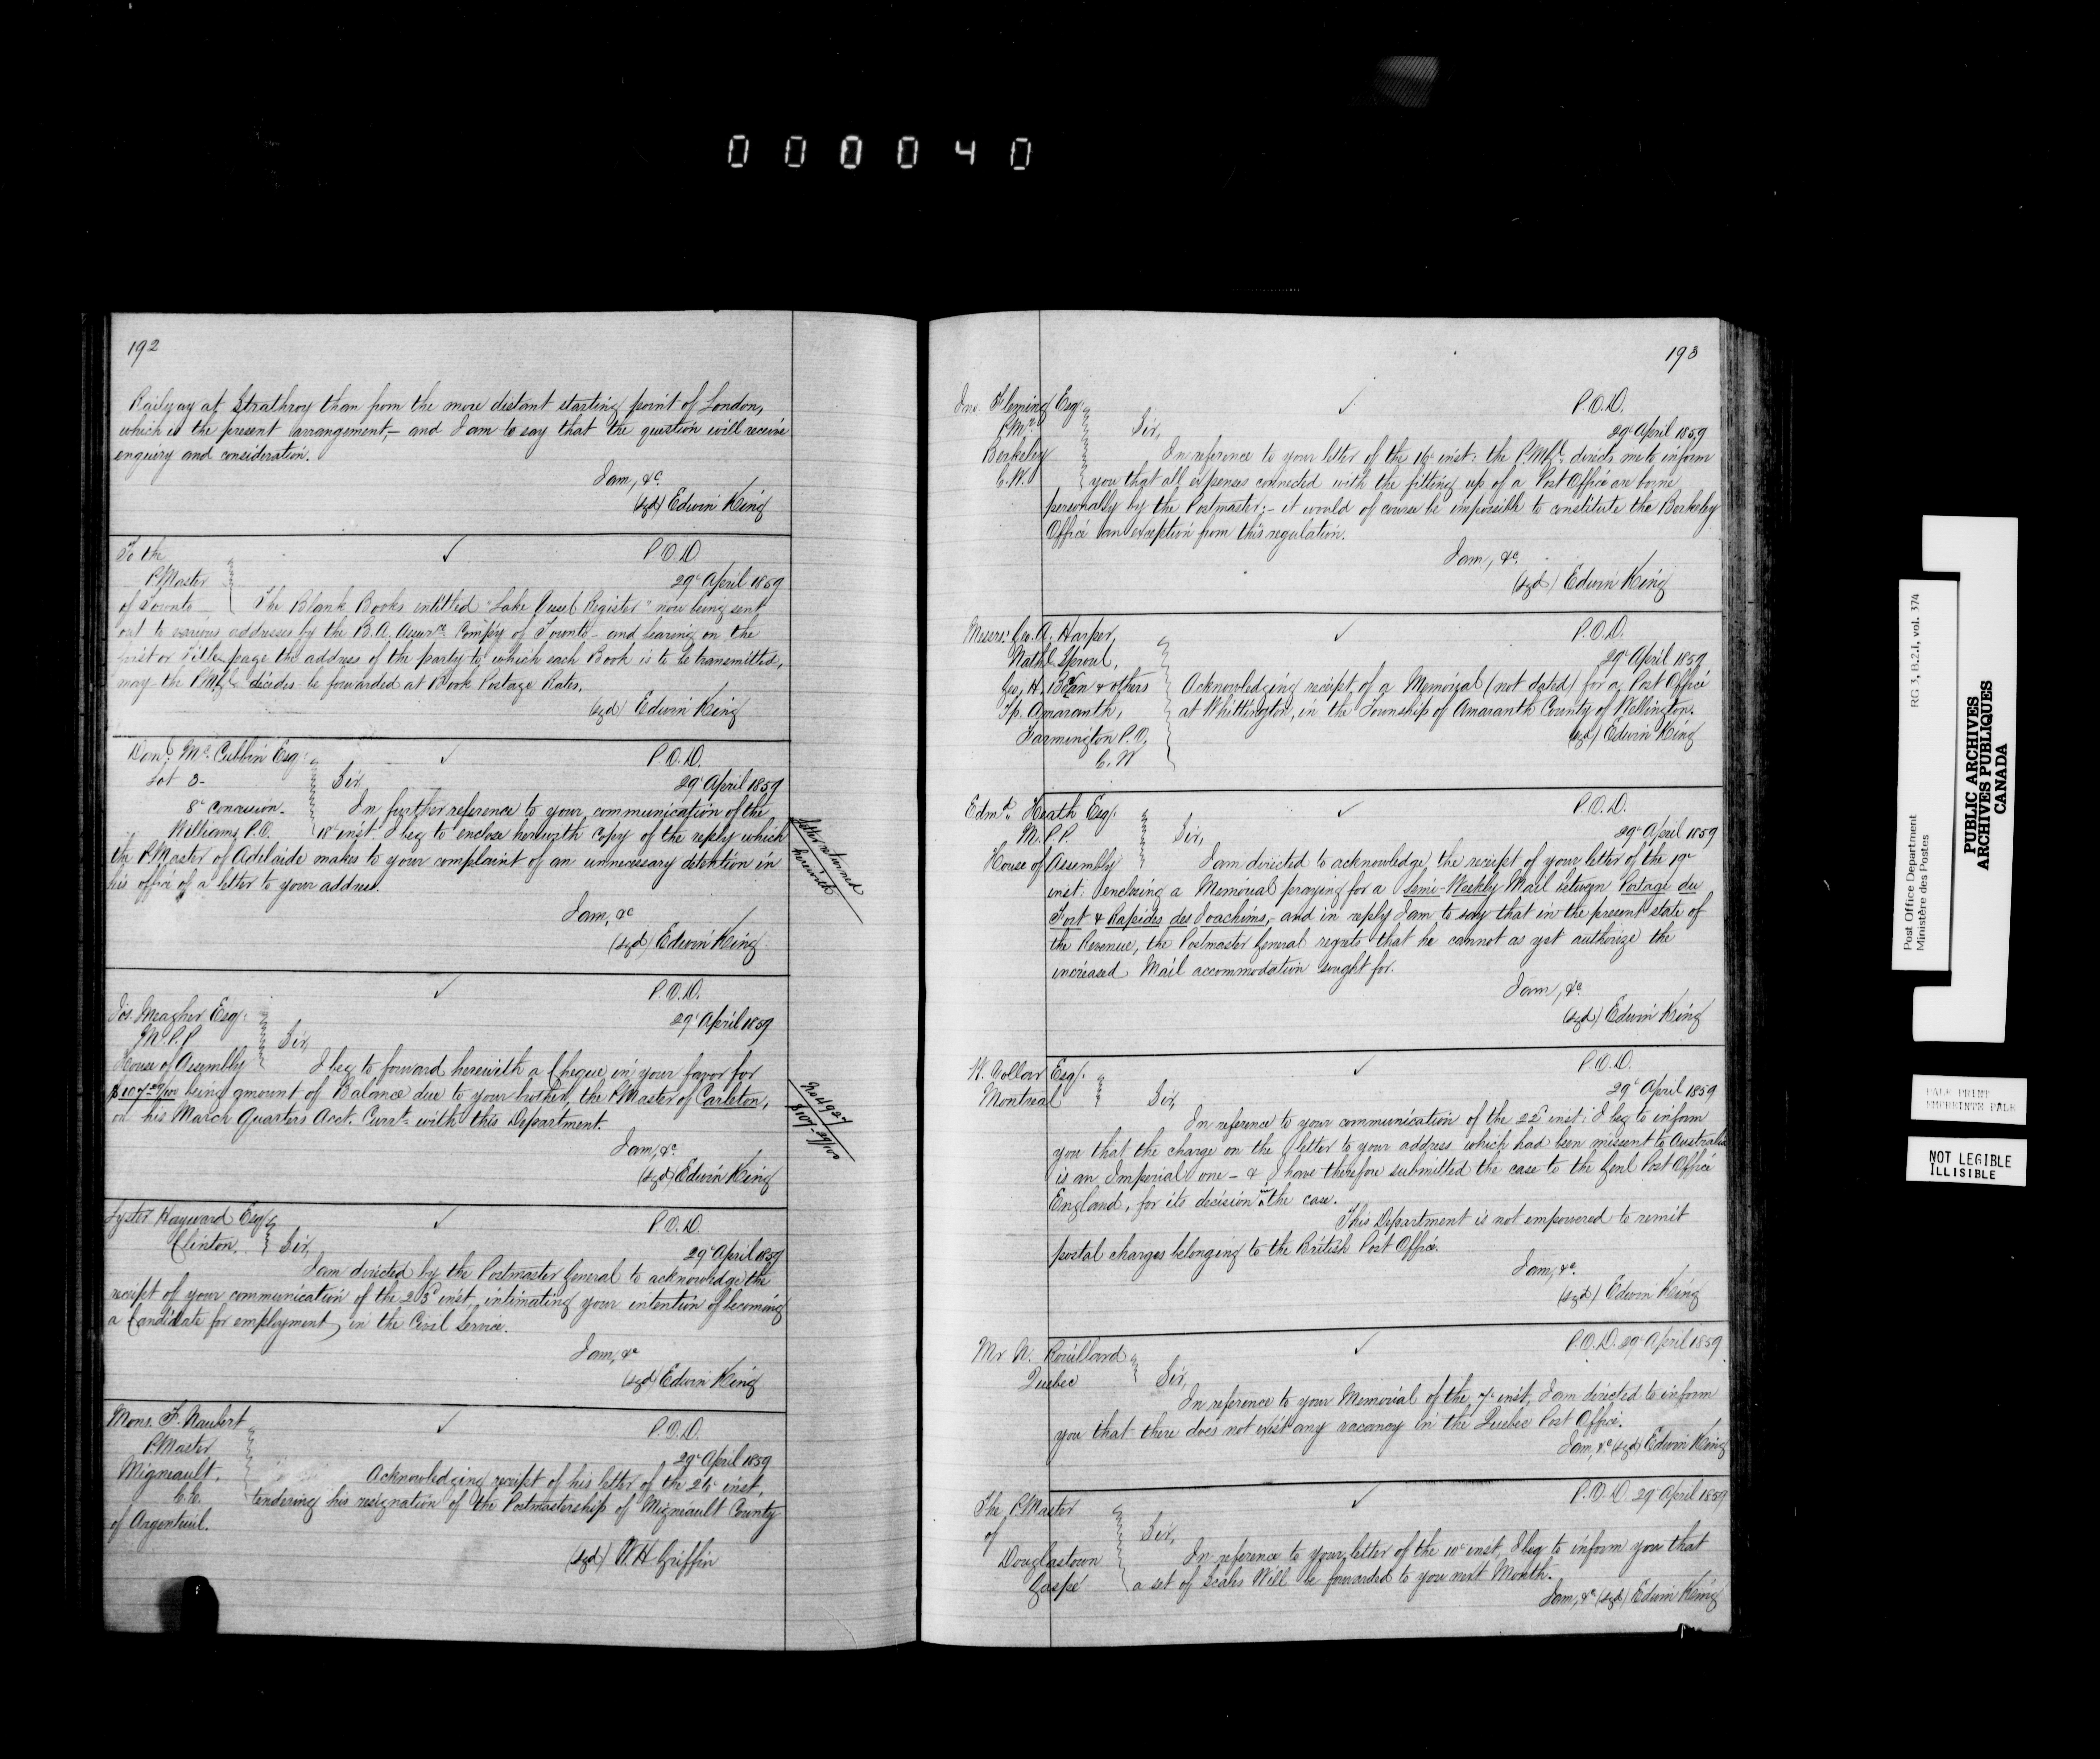 000040
192
Railway at Strathroy than from the more distant starting point of London,
which is the present arrangement,— and I am to say that the question will receive
enquiry and consideration.
I am, &c.
(sgd) Edwin King
To the
PMaster
of Toronto
✓
P.O.D
29th April 1859
The Blank Books entitled "Lake Vessel Register" now being sent
out to various addresses by the B.A. Assurce Compy of Toronto – and bearing on the
first or Title page the address of the party to which each Book is to be transmitted,
may the P.M.G. decides be forwarded at Book Postage Rates.
(sgd) Edwin King
Donl McCubbin Esq.
Lot 3-
8th Concession.
Williams P.O.
✓
P.O.D.
29th April 1859
Sir
In further reference to your communication of the
18th inst. I beg to enclose herewith copy of the reply which
the PMaster of Adelaide makes to your complaint of an unnecessary detention in
his office of a letter to your address.
I am, &c
(sgd) Edwin King
letter returned
herewith
Jos. Meagher Esq.
M.P.P
House of Assembly
✓
P.O.D.
29th April 1859
Sir,
I beg to forward herewith a Cheque in your favor for
being amount of Balance due to your brother, the PMaster of Carleton,
on his March Quarters Acct. Curt. with this Department.
I am, &c.
(sgd) Edwin King
No 4927
Lyster Hayward Esq
Clinton.
✓
P.O.D
29th April 1859
Sir,
I am directed by the Postmaster General to acknowledge the
receipt of your communication of the 23d inst. intimating your intention of becoming
a Candidate for employment, in the Civil Service.
I am, &c
(sgd) Edwin King
Mons. F. Naubert
PMaster
Migneault.
C.E.
of Argenteuil.
✓
P.O.D.
29th April 1859
Acknowledging receipt of his letter of the inst,
tendering his resignation of the Postmastership of Migneault County
(sgd) W.H. Griffin
193
Jno. Fleming Esq.
P.Mr.
Berkeley
C.W.
✓
P.O.D.
29th April 1859
Sir,
In reference to your letter of the 16th inst. the P.M.Gl. directs me to inform
you that all expenses connected with the fitting up of a Post Office are borne
personally by the Postmaster;– it would of course be impossible to constitute the Berkeley
Office an exception from this regulation.
I am, &c.
(sgd) Edwin King
Messrs. Geo. A. Harper,
Nathl Sproul,
Geo. H. & others
Tp. Amaranth,
Farmington P.O.
C.W
✓
P.O.D.
29th April 1859
Acknowledging receipt of a Memorial (not dated) for a Post Office
at Whittington, in the Township of Amaranth County of Wellington.
(sgd) Edwin King
Edmd. Heath Esq.
M.P.P.
House of Assembly
✓
P.O.D.
29th April 1859
Sir,
I am directed to acknowledge the receipt of your letter of the 19th
inst. enclosing a Memorial praying for a Semi-Weekly Mail between Portage du
Fort & Rapides des Joachims,– and in reply I am to say that in the present state of
the Revenue, the Postmaster General regrets that he cannot as yet authorize the
increased Mail accommodation sought for.
I am, &c.
(sgd) Edwin King
Esq.
Montreal
✓
P.O.D.
29th April 1859
Sir,
In reference to your communication of the 22d inst. I beg to inform
you that the charge on the letter to your address which had been missent to Australia
is an Imperial one – & I have therefore submitted the case to the Genl Post Office
England, for its decision in the case.
This Department is not empowered to remit
postal charges belonging to the British Post Office.
I am, &c.
(sgd) Edwin King
Mr N. Rouillard
Quebec
✓
P.O.D. 29th April 1859
Sir,
In reference to your Memorial of the 7th inst, I am directed to inform
you that there does not exist any vacancy in the Quebec Post Office.
I am, &c (sgd) Edwin King
The PMaster
of
Douglastown
Gaspé
✓
P.O.D. 29th April 1859
Sir,
In reference to your letter of the 10th inst, I beg to inform you that
a set of Scales will be forwarded to you next Month.
I am, &c (sgd) Edwin King
Post Office Department
Ministère des Postes
RG 3, B.2.1, vol. 374
PUBLIC ARCHIVES
ARCHIVES PUBLIQUES
CANADA
PALE PRINT
EMPREINTE PALE
NOT LEGIBLE
ILLISIBLE